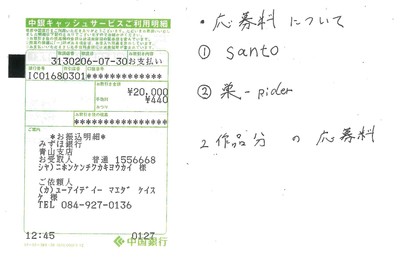 中銀キャッシュサービスご利用明細
3130206-07-30お支払い
IC01680301*
¥20,000
¥440
ご案内
*お振込明細*
みずほ銀行
青山支店
お受取人 普通 1556668
シヤ)ニホンケンチクカキヨウカイ 様
ご依頼人
(カ)ユーアイデイー マエダ ケイス
ケ 様
TEL 084-927-0136
12:45 0127
中国銀行
・応募料について
① santo
② 巣-rider
2作品分の応募料